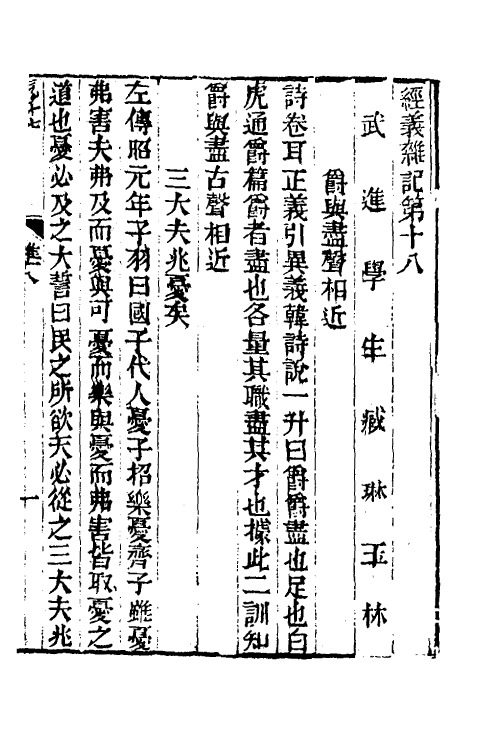 經義雜記第十八
武進學生臧琳玉林
爵與盡聲相近
詩卷耳正義引異義韓詩說一升曰爵爵盡也足也白
虎通爵篇爵者盡也各量其職盡其才也據此二訓知
爵與盡古聲相近
三大夫兆憂矣
左傳昭元年子羽曰國子代人憂子招樂憂齊子雖憂
弗害夫弗及而憂與可憂而樂與憂而弗害皆取憂之
道也憂必及之大誓曰民之所欲天必從之三大夫兆
一